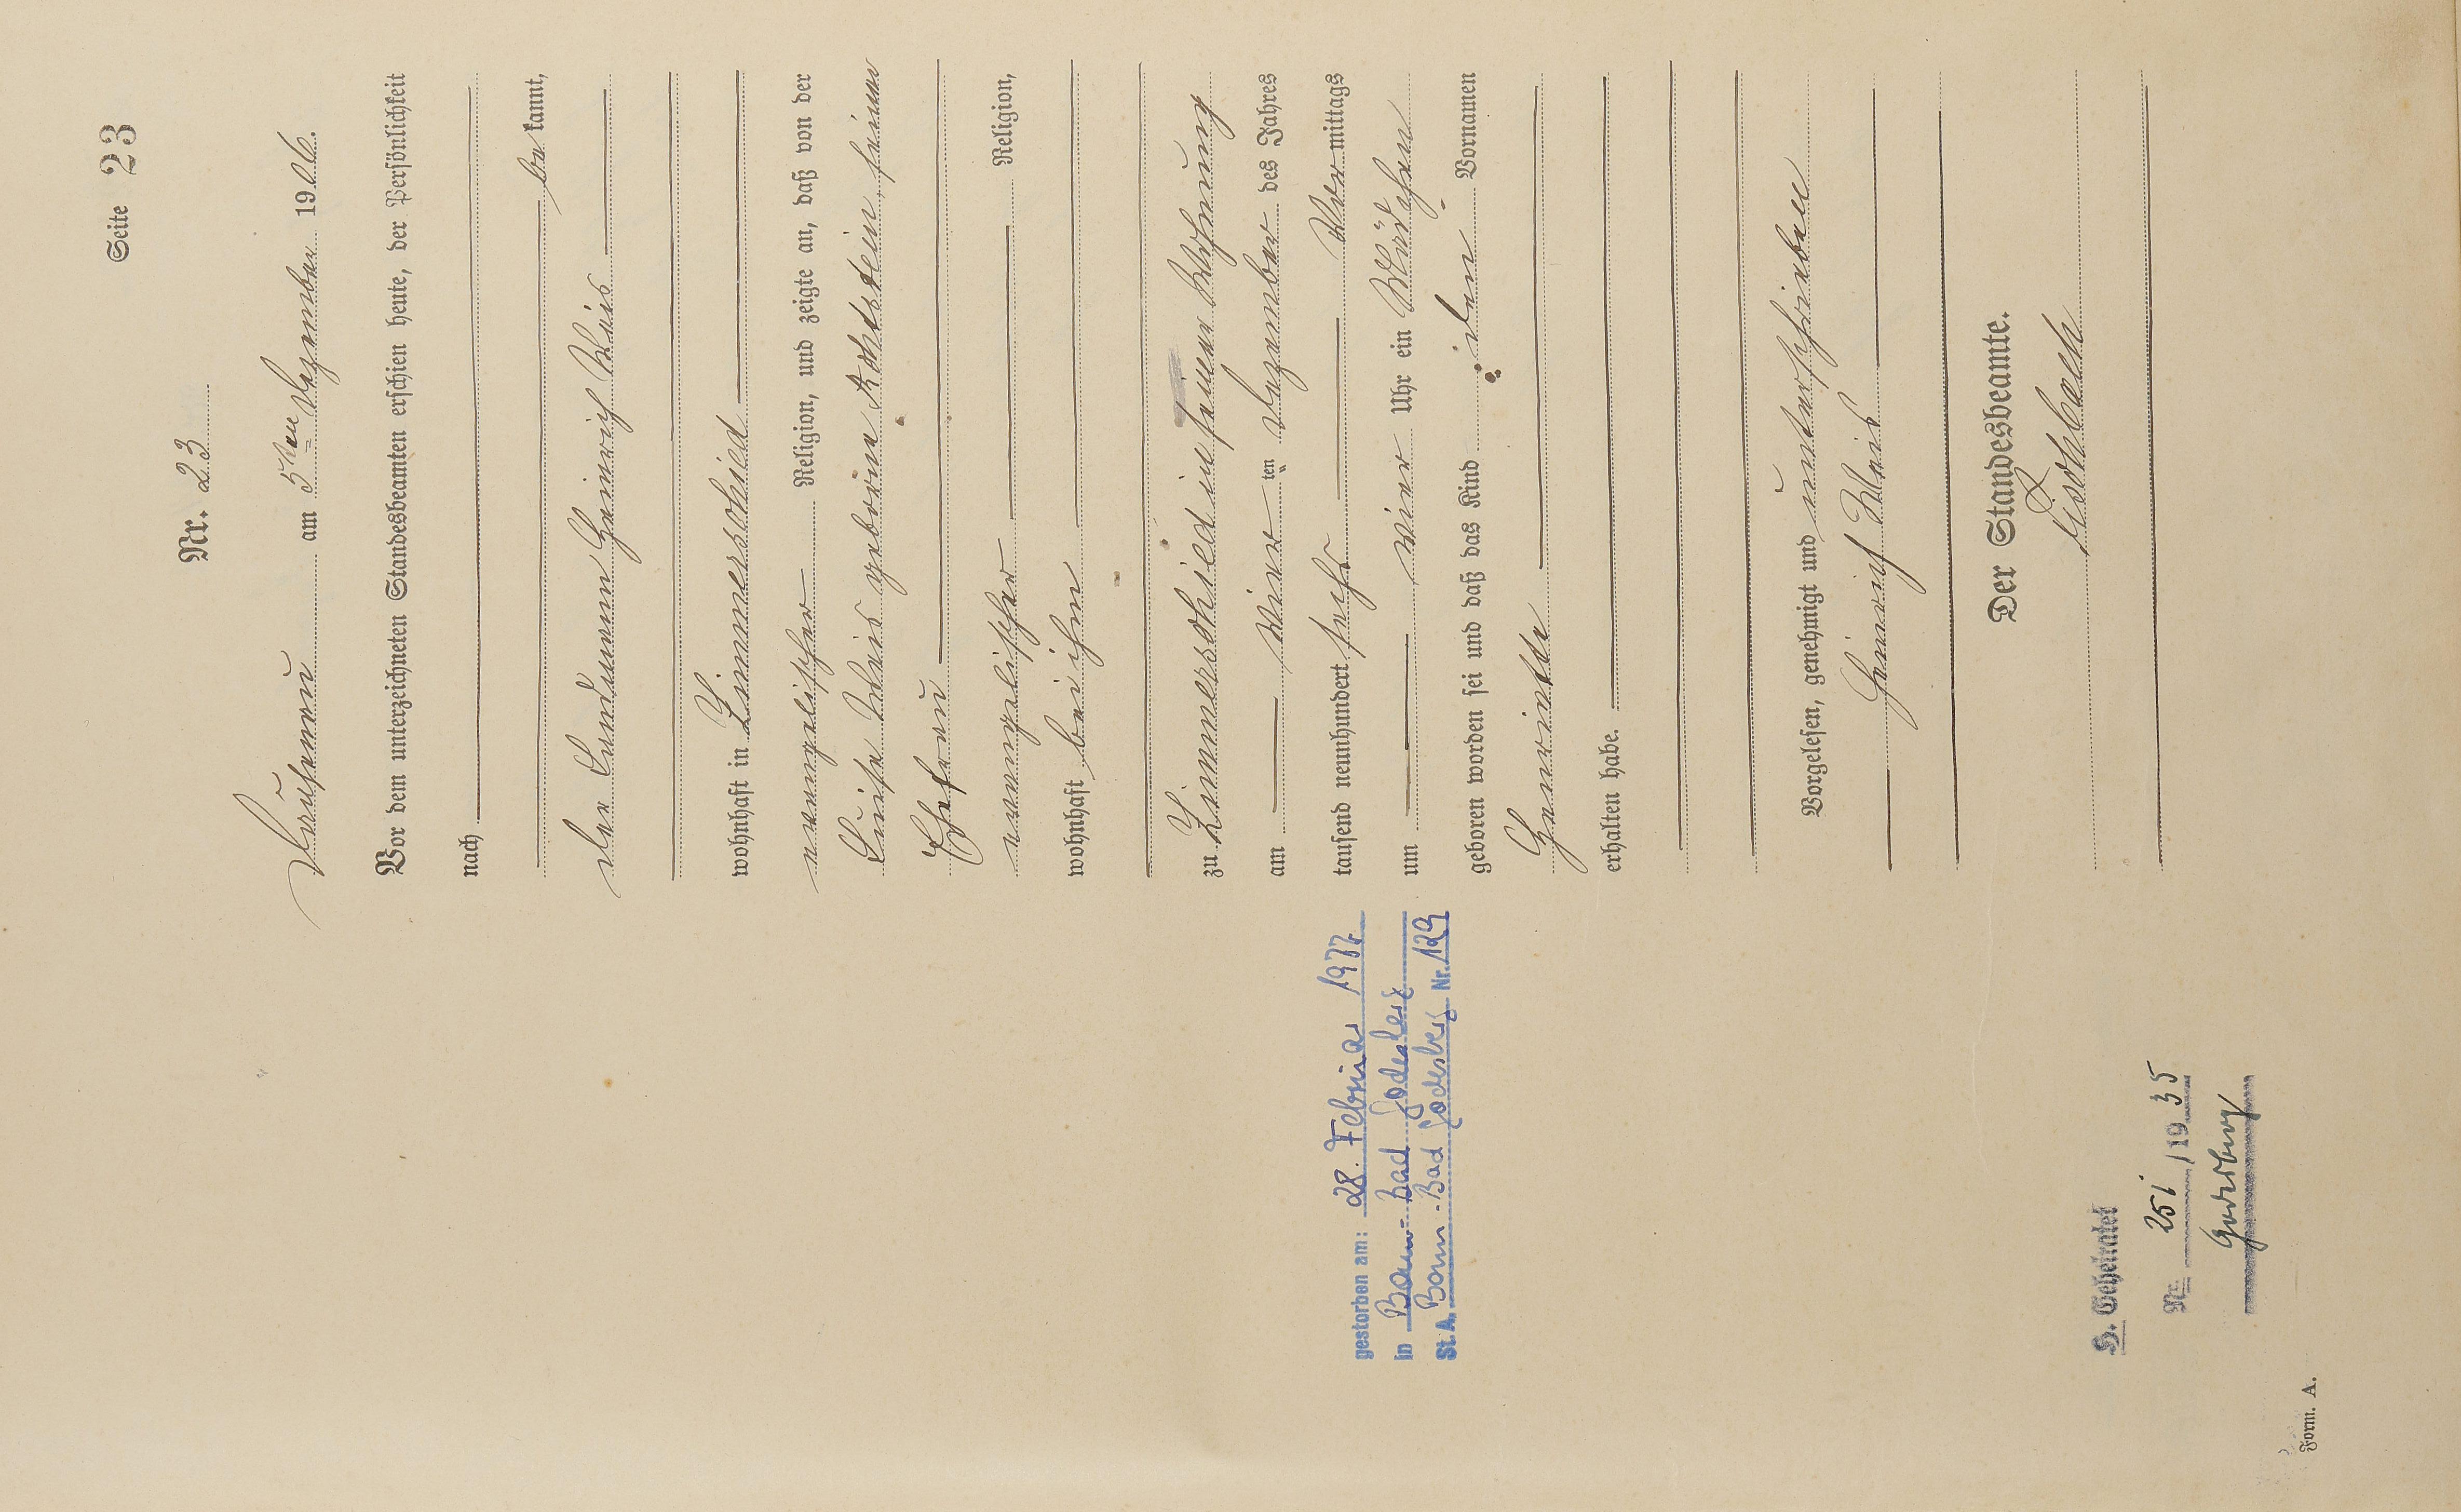 Seite 23
Nr. 23
Dausenau am 5ten Dezember 1906.
Vor dem unterzeichneten Standesbeamten erschien heute, der Persönlichkeit
nach
bekannt,
der Landmann Heinrich Weis
wohnhaft in Zimmerschied
evangelischer Religion, und zeigte an, daß von der
Luise Weis geborne seiner
Ehefrau
evangelischer Religion,
wohnhaft bei ihm
zu Zimmerschied in seiner Wohnung
am vier ten Dezember des Jahres
tausend neunhundert sechs Vormittags
um vier Uhr ein Mädchen
geboren worden sei und daß das Kind den Vornamen
Henriette
erhalten habe.
Vorgelesen, genehmigt und unterschrieben
Heinrich Weis
Der Standesbeamte.
Fischbach
gestorben am: 28. Februar 1977
in Bonn-Bad Godesberg
St.A. Bonn-Bad Godesberg Nr. 129
H. Geheiratet
Nr. 251/1935
Godesberg
Form. A.